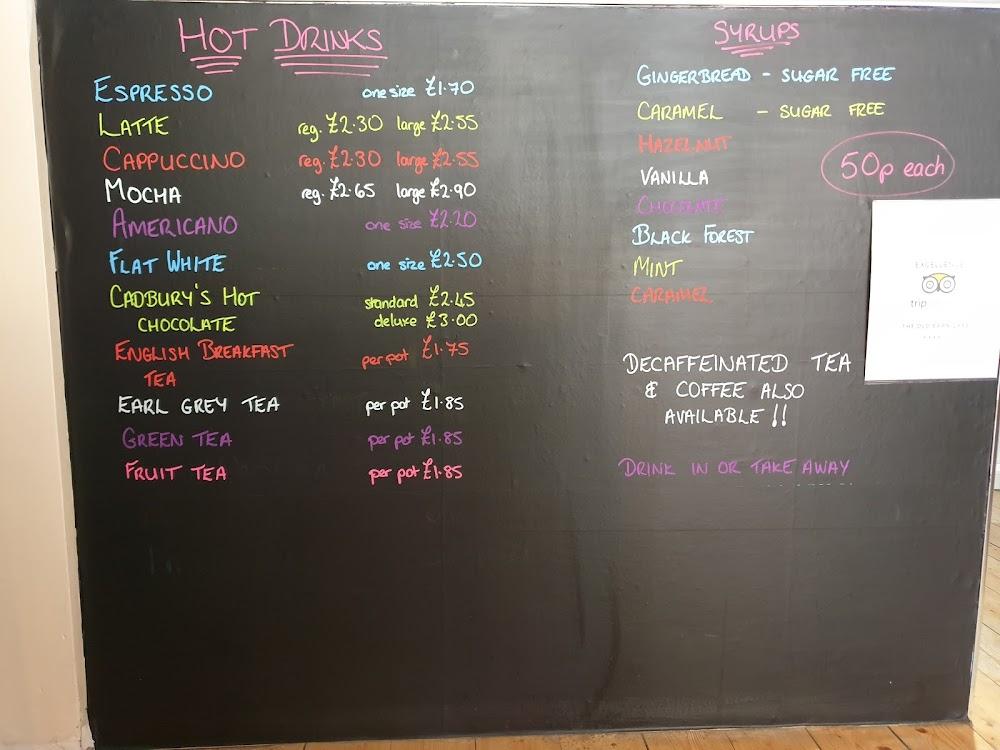 HOT DRINKS
ESPRESSO one size £1.70
LATTE reg. £2.30 large £2.55
CAPPUCCINO reg. £2.30 large £2.55
MOCHA reg. £2.65 large £2.90
AMERICANO one size £2.20
FLAT WHITE one size £2.50
CADBURY'S HOT standard £2.45
CHOCOLATE deluxe £3.00
ENGLISH BREAKFAST per pot £1.75
TEA
EARL GREY TEA per pot £1.85
GREEN TEA per pot £1.85
FRUIT TEA per pot £1.85
SYRUPS
GINGERBREAD - SUGAR FREE
CARAMEL - SUGAR FREE
HAZELNUT
VANILLA
CHOCOLATE
BLACK FOREST
MINT
CARAMEL
50p each
DECAFFEINATED TEA
& COFFEE ALSO
AVAILABLE !!
DRINK IN OR TAKE AWAY
EXCELLENCE
trip
THE OLD BARN CAFE